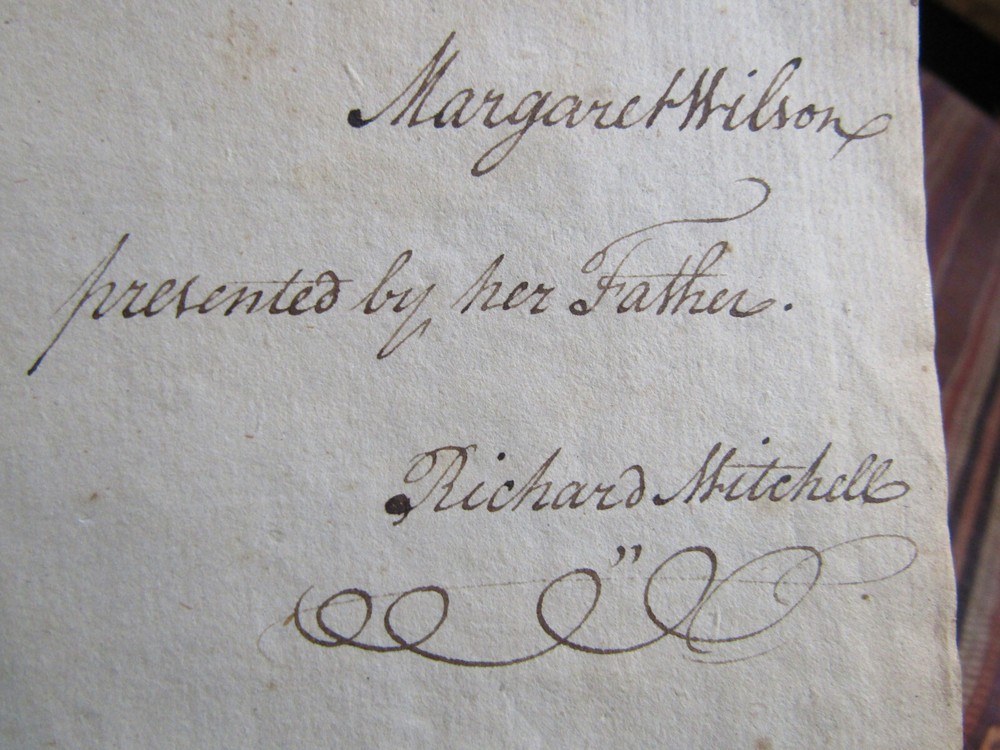 Margaret Wilson
presented by her Father.
Richard Mitchell
"